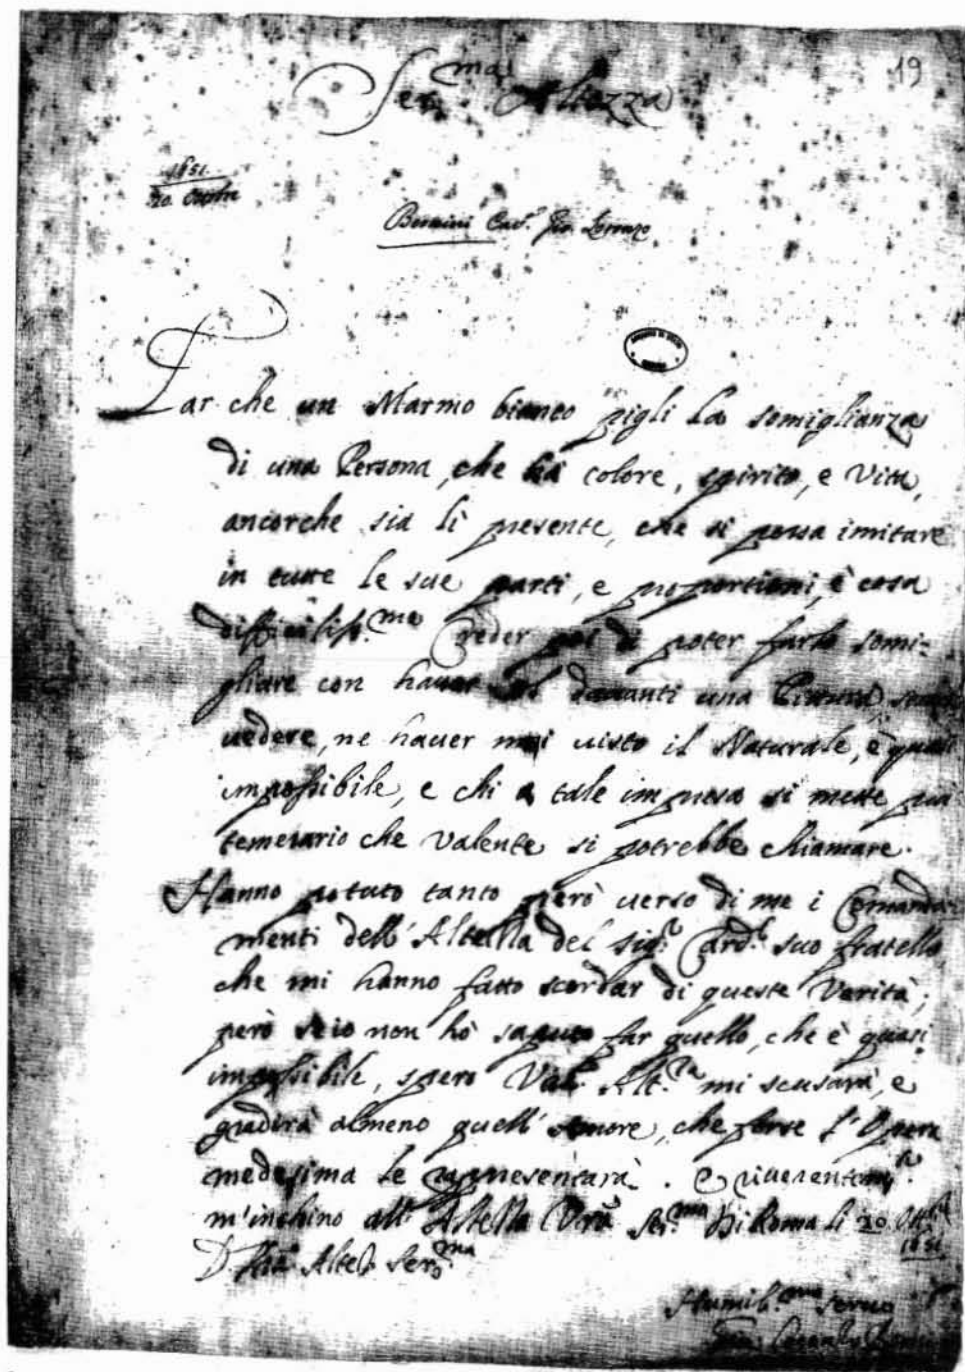 19
Ser.ma Altezza
1651.
20. Ottobre
Bernini Cav.r Gio. Lorenzo
Far che un Marmo bianco pigli la somiglianza
di una Persona, che hà colore, spirito, e Vita,
ancorche sia lì presente, che si possa imitare
in tutte le sue parti, e proportioni, è cosa
difficiliss.ma Creder poi di poter farlo somi=
gliare con haver davanti una Pittura, senza
vedere, ne haver mai visto il Naturale, è quasi
impossibile, e chi a tale impresa si mette più
temerario che Valente si potrebbe chiamare.
Hanno potuto tanto però verso di me i Comanda-
menti dell' Altezza del Sig.r Card.l suo fratello,
che mi hanno fatto scordar di queste Verità;
però se io non hò saputo far quello, che è quasi
impossibile, spero Vos. Alt.za mi scusarà, e
gradirà almeno quell' Amore, che forse l'Opera
medesima le rappresentarà. E riverentem.te
m'inchino all' Altezza Vra Ser.ma Di Roma li 20 Ott.bre
1651
D V.ra Altez. Ser.ma
Humil.mo servo
Gio. Lorenzo Bernini